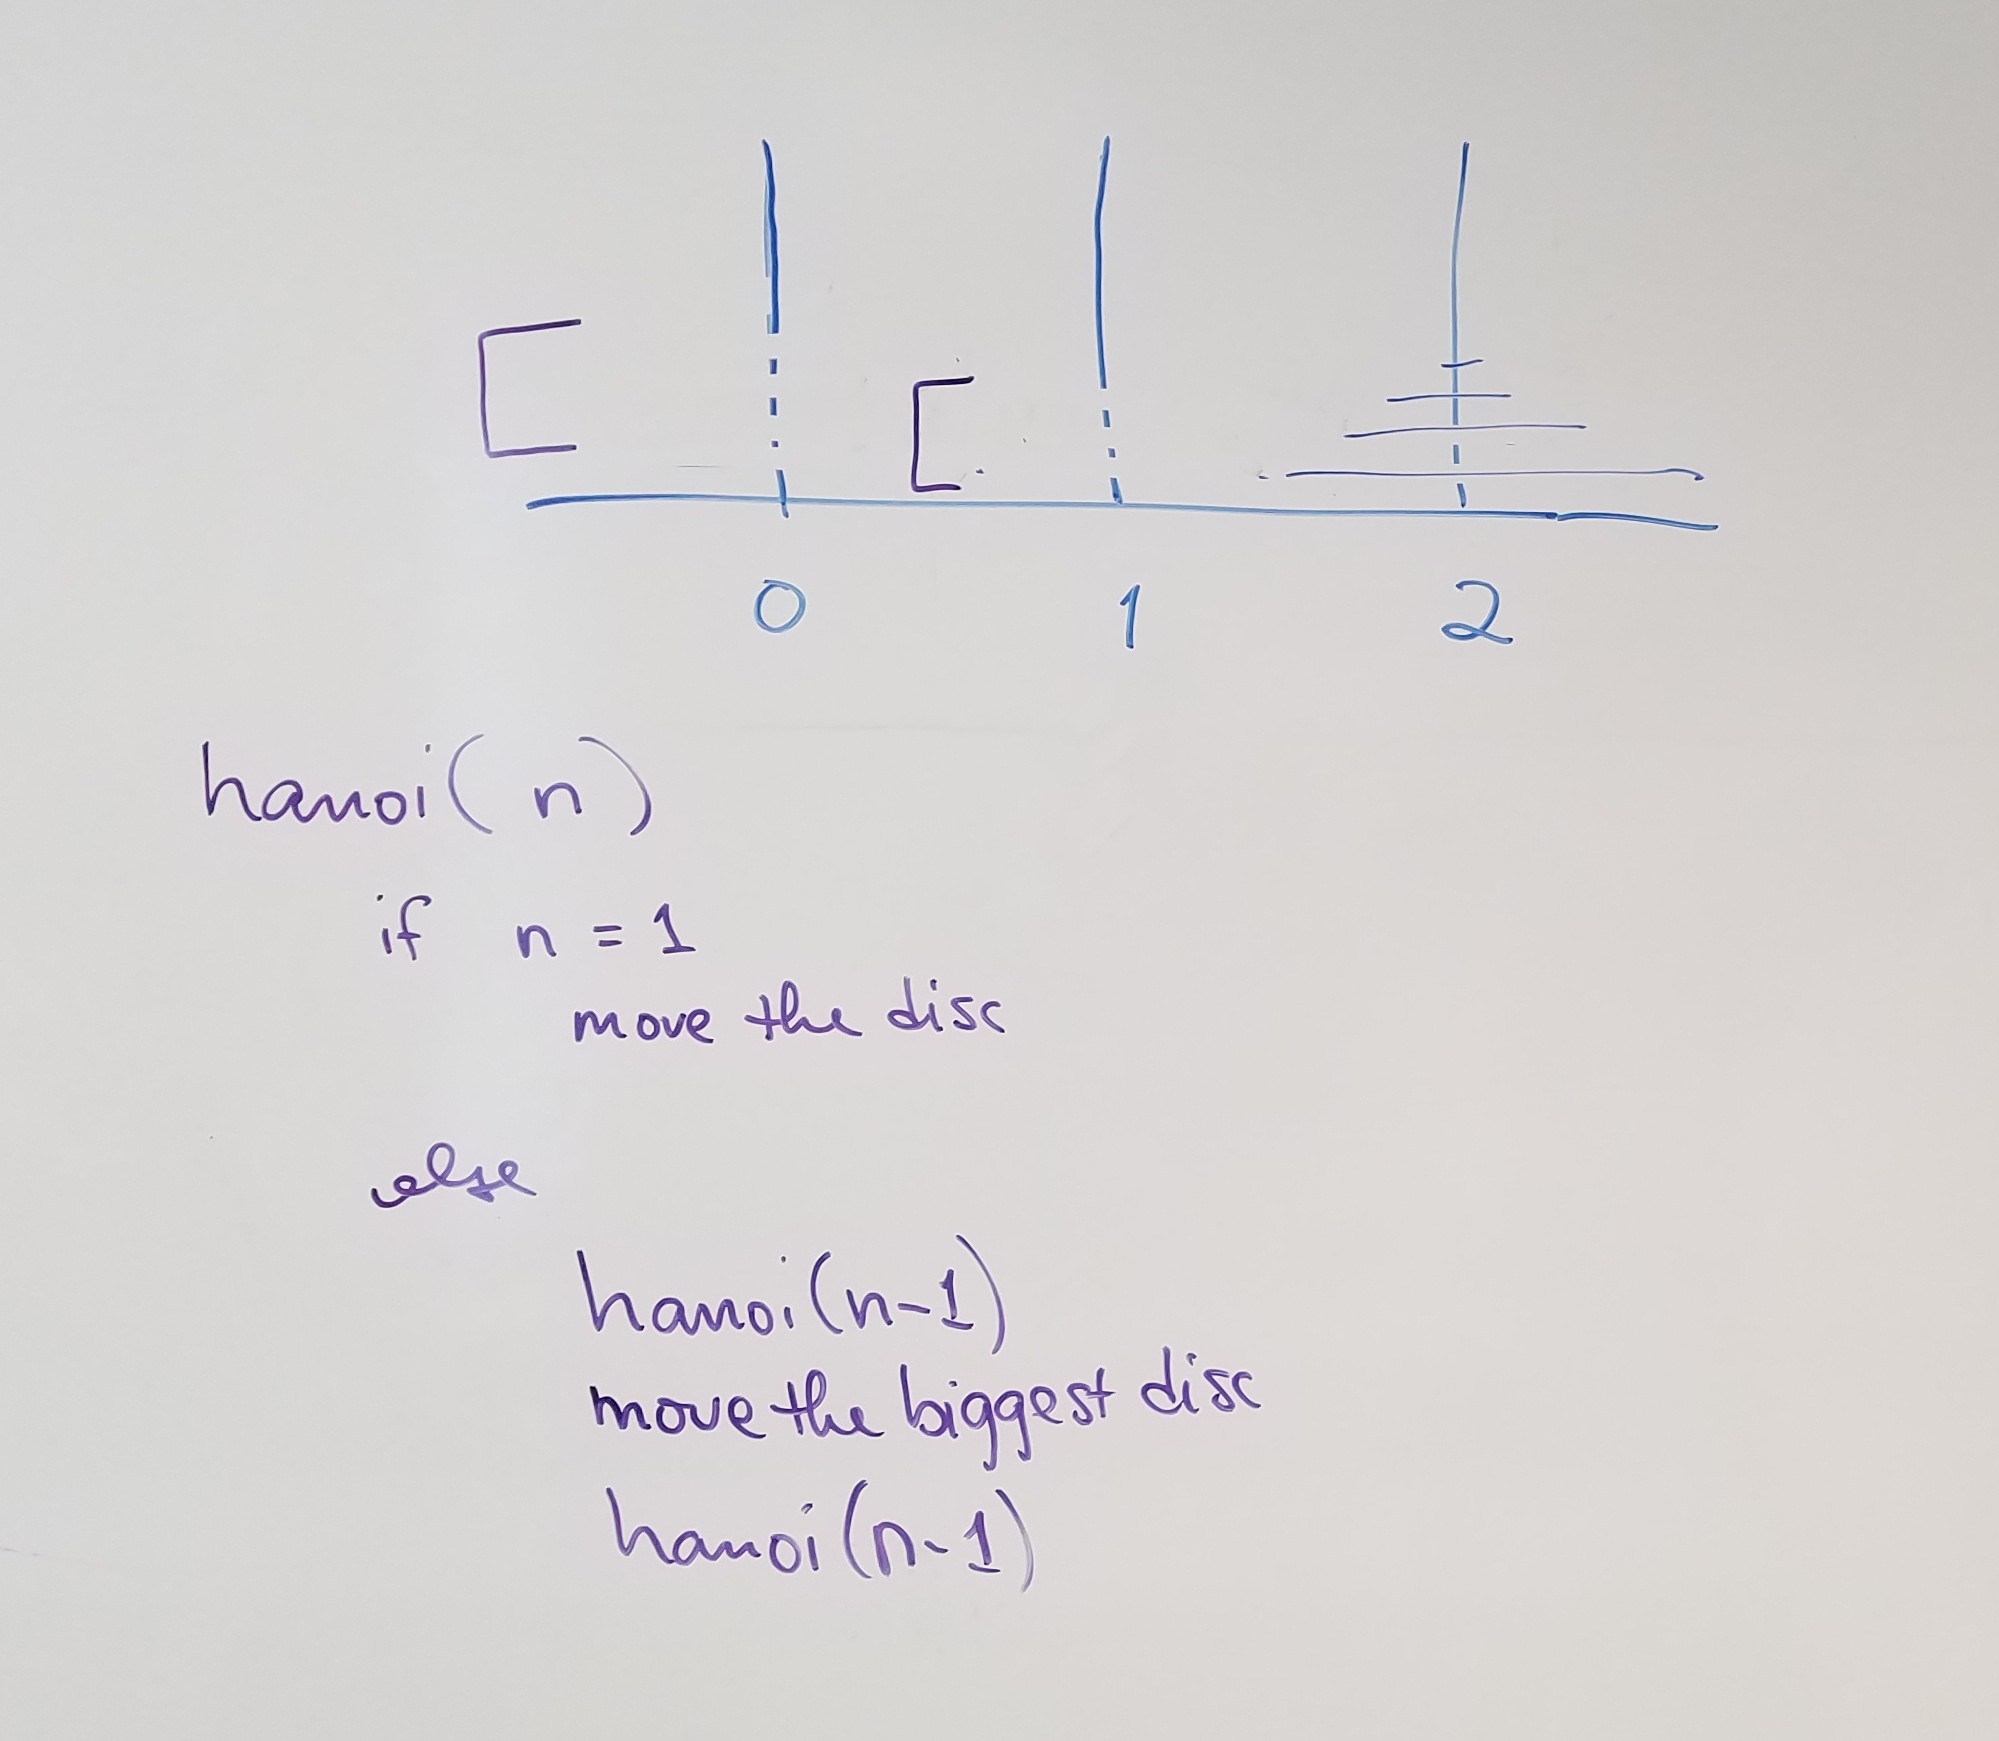 0 1 2
hanoi(n)
if n = 1
move the disc
else
hanoi(n-1)
move the biggest disc
hanoi(n-1)